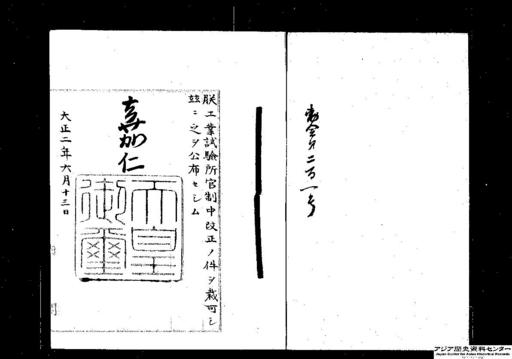 勅令第二百一号
朕工業試験所官制中改正ノ件ヲ裁可シ
茲ニ之ヲ公布セシム
嘉仁
天皇御璽
大正二年六月十三日
アジア歴史資料センター
Japan Center for Asian Historical Records